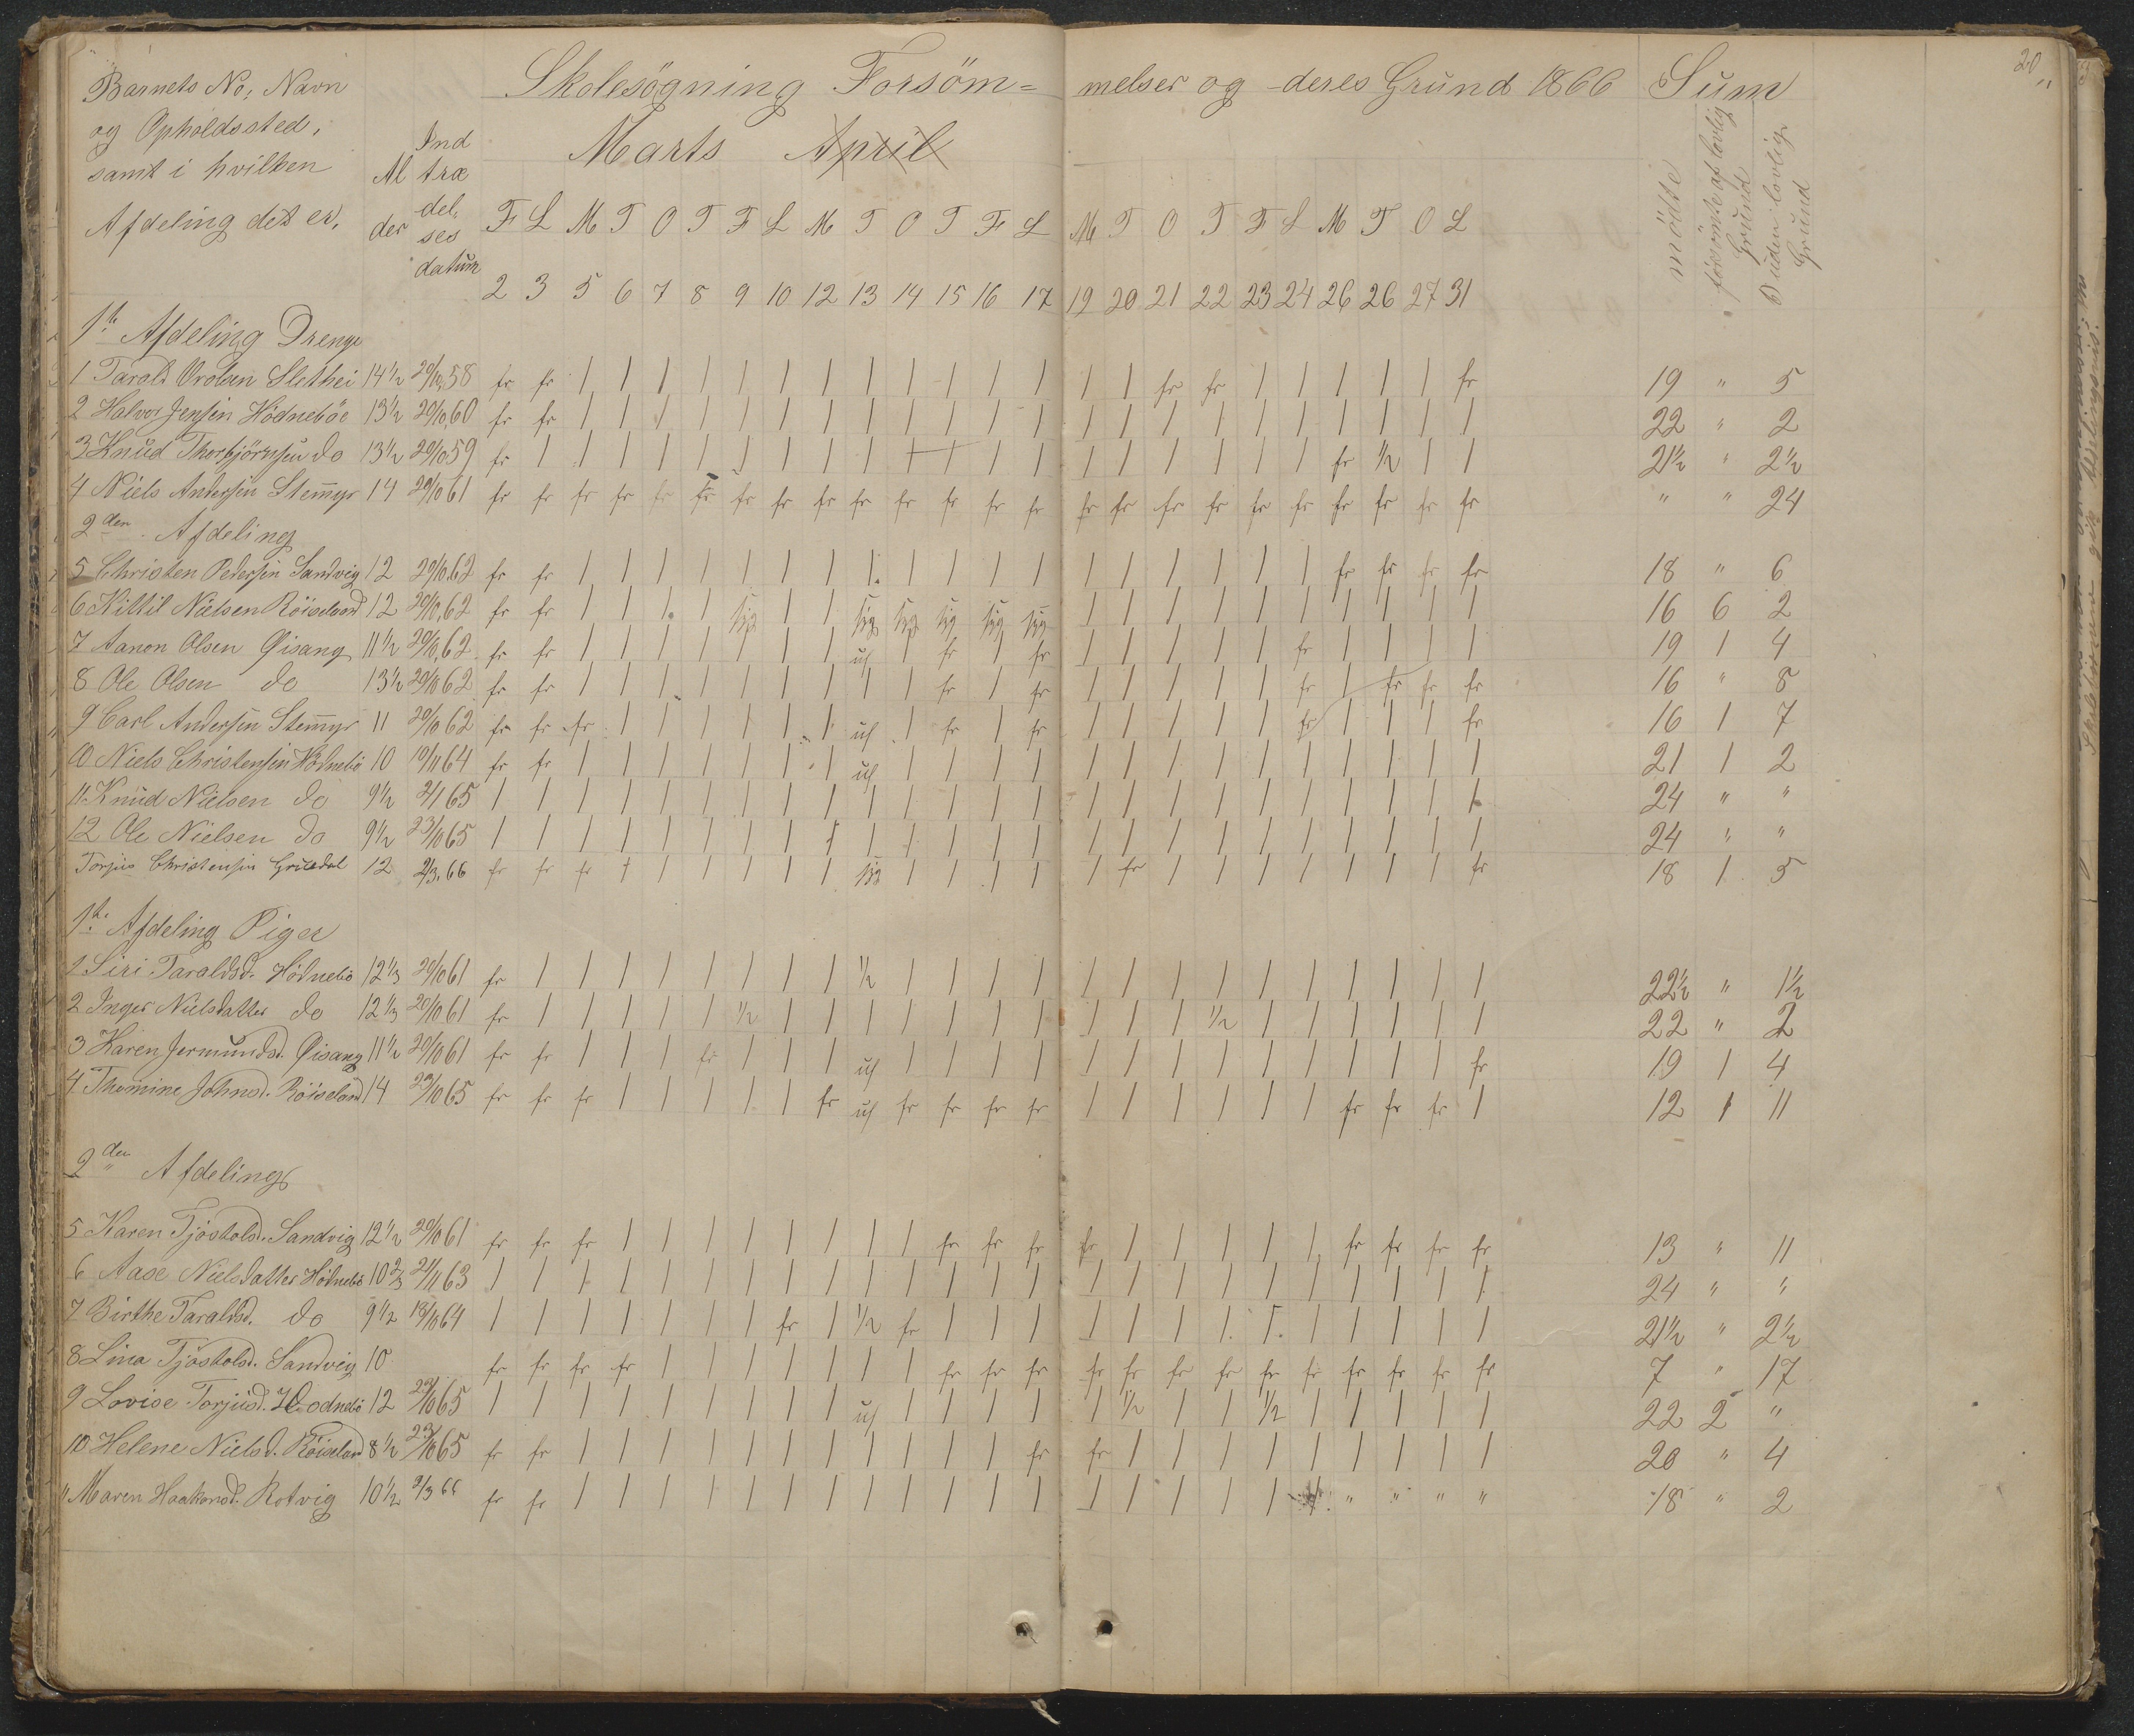 Skolesögning Forsöm= melser og deres Grund 1866 Sum 20
Barnets No, Navn
og Opholdssted,
samt i hvilken
Afdeling det er.
Al
der
Ind
træ
del.
ses
datum
Marts April
mödte
forsömte af lovlig Grund
uden lovlig Grund
F L M T O T F L M T O T F L M T O T F L M T O L
2 3 5 6 7 8 9 10 12 13 14 15 16 17 19 20 21 22 23 24 26 26 27 31
1ste Afdeling Drenge
1 Tarald Orolsen Slethei 14½ 20/10,58 fr fr | | | | | | | | | | | | | | fr fr | | | | | fr 19 " 5
2 Halvor Jensen Hödneböe 13½ 20/10,60 fr fr | | | | | | | | | | | | | | | | | | | | | | 22 " 2
3 Knud Thorbjörnsen do 13½ 20/10 59 fr | | | | | | | | | | | | | | | | | | | fr ½ | | 21½ " 2½
4 Niels Andersen Stemmyr 14 20/10 61 fr fr fr fr fr fr fr fr fr fr fr fr fr fr fr fr fr fr fr fr fr fr fr fr " " 24
2den Afdeling
5 Christen Pedersen Sandvig 12 20/10.62 fr fr | | | | | | | | | | | | | | | | | | fr fr fr fr 18 " 6
6 Kittil Nielsen Röiseland 12 20/10,62 fr fr | | | | syg | | syg syg syg syg syg | | | | | | | | | | 16 6 2
7 Aanon Olsen Øisang 11½ 20/10,62 fr fr | | | | | | | uf | fr | fr | | | | | fr | | | | 19 1 4
8 Ole Olsen do 13½ 20/10 62 fr fr | | | | | | | | | fr | fr | | | | | fr | fr fr fr 16 " 8
9 Carl Andersen Stemmyr 11 20/10 62 fr fr fr | | | | | | uf | fr | fr | | | | | fr | | | fr 16 1 7
10 Niels Christensen Hödnebö 10 19/11 64 fr fr | | | | | | | uf | | | | | | | | | | | | | | 21 1 2
11 Knud Nielsen do 9½ 2/1 65 | | | | | | | | | | | | | | | | | | | | | | | | 24 " "
12 Ole Nielsen do 9½ 23/10 65 | | | | | | | | | | | | | | | | | | | | | | | | 24 " "
Torjus Christensen 12 2/3.66 fr fr fr | | | | | | syg | | | | | fr | | | | | | | fr 18 1 5
1ste Afdeling Piger
1 Siri Taraldsd. Hödnebö 12⅓ 20/10 61 fr | | | | | | | | ½ | | | | | | | | | | | | | | 22½ " 1½
2 Inger Nielsdatter do 12⅓ 20/10 61 fr | | | | | ½ | | | | | | | | | | ½ | | | | | | 22 " 2
3 Karen Jermundsd. Øisang 11½ 20/10 61 fr fr | | | fr | | | uf | | | | | | | | | | | | | fr 19 1 4
4 Thomine Johnsd. Röiseland 14 23/10 65 fr fr fr | | | | | fr uf fr fr fr fr | | | | | | fr fr fr | 12 1 11
2den Afdeling
5 Karen Tjöstolsd. Sandvig 12½ 20/10 61 fr fr fr | | | | | | | | fr fr fr fr | | | | | fr fr fr fr 13 " 11
6 Aase Nielsdatter Hödnebö 10⅔ 21/11 63 | | | | | | | | | | | | | | | | | | | | | | | | 24 " "
7 Birthe Taraldsd. do 9½ 18/10 64 | | | | | | | fr | ½ fr | | | | | | | | | | | | | 21½ " 2½
8 Lina Tjöstolsd. Sandvig 10 fr fr fr fr | | | | | | | fr fr fr fr fr fr fr fr fr fr fr fr fr 7 " 17
9 Lovise Torjusd. Hodnebö 12 23/10 65 | | | | | | | | | uf | | | | | ½ | | ½ | | | | | 22 2 "
10 Helene Nielsd. Röiseland 8½ 23/10 65 fr fr | | | | | | | | | | | fr fr | | | | | | | | | 20 " 4
" Maren Haakonsd. Rotvig 10½ 2/3 66 fr fr | | | | | | | | | | | | | | | | | " " " " 18 " 2